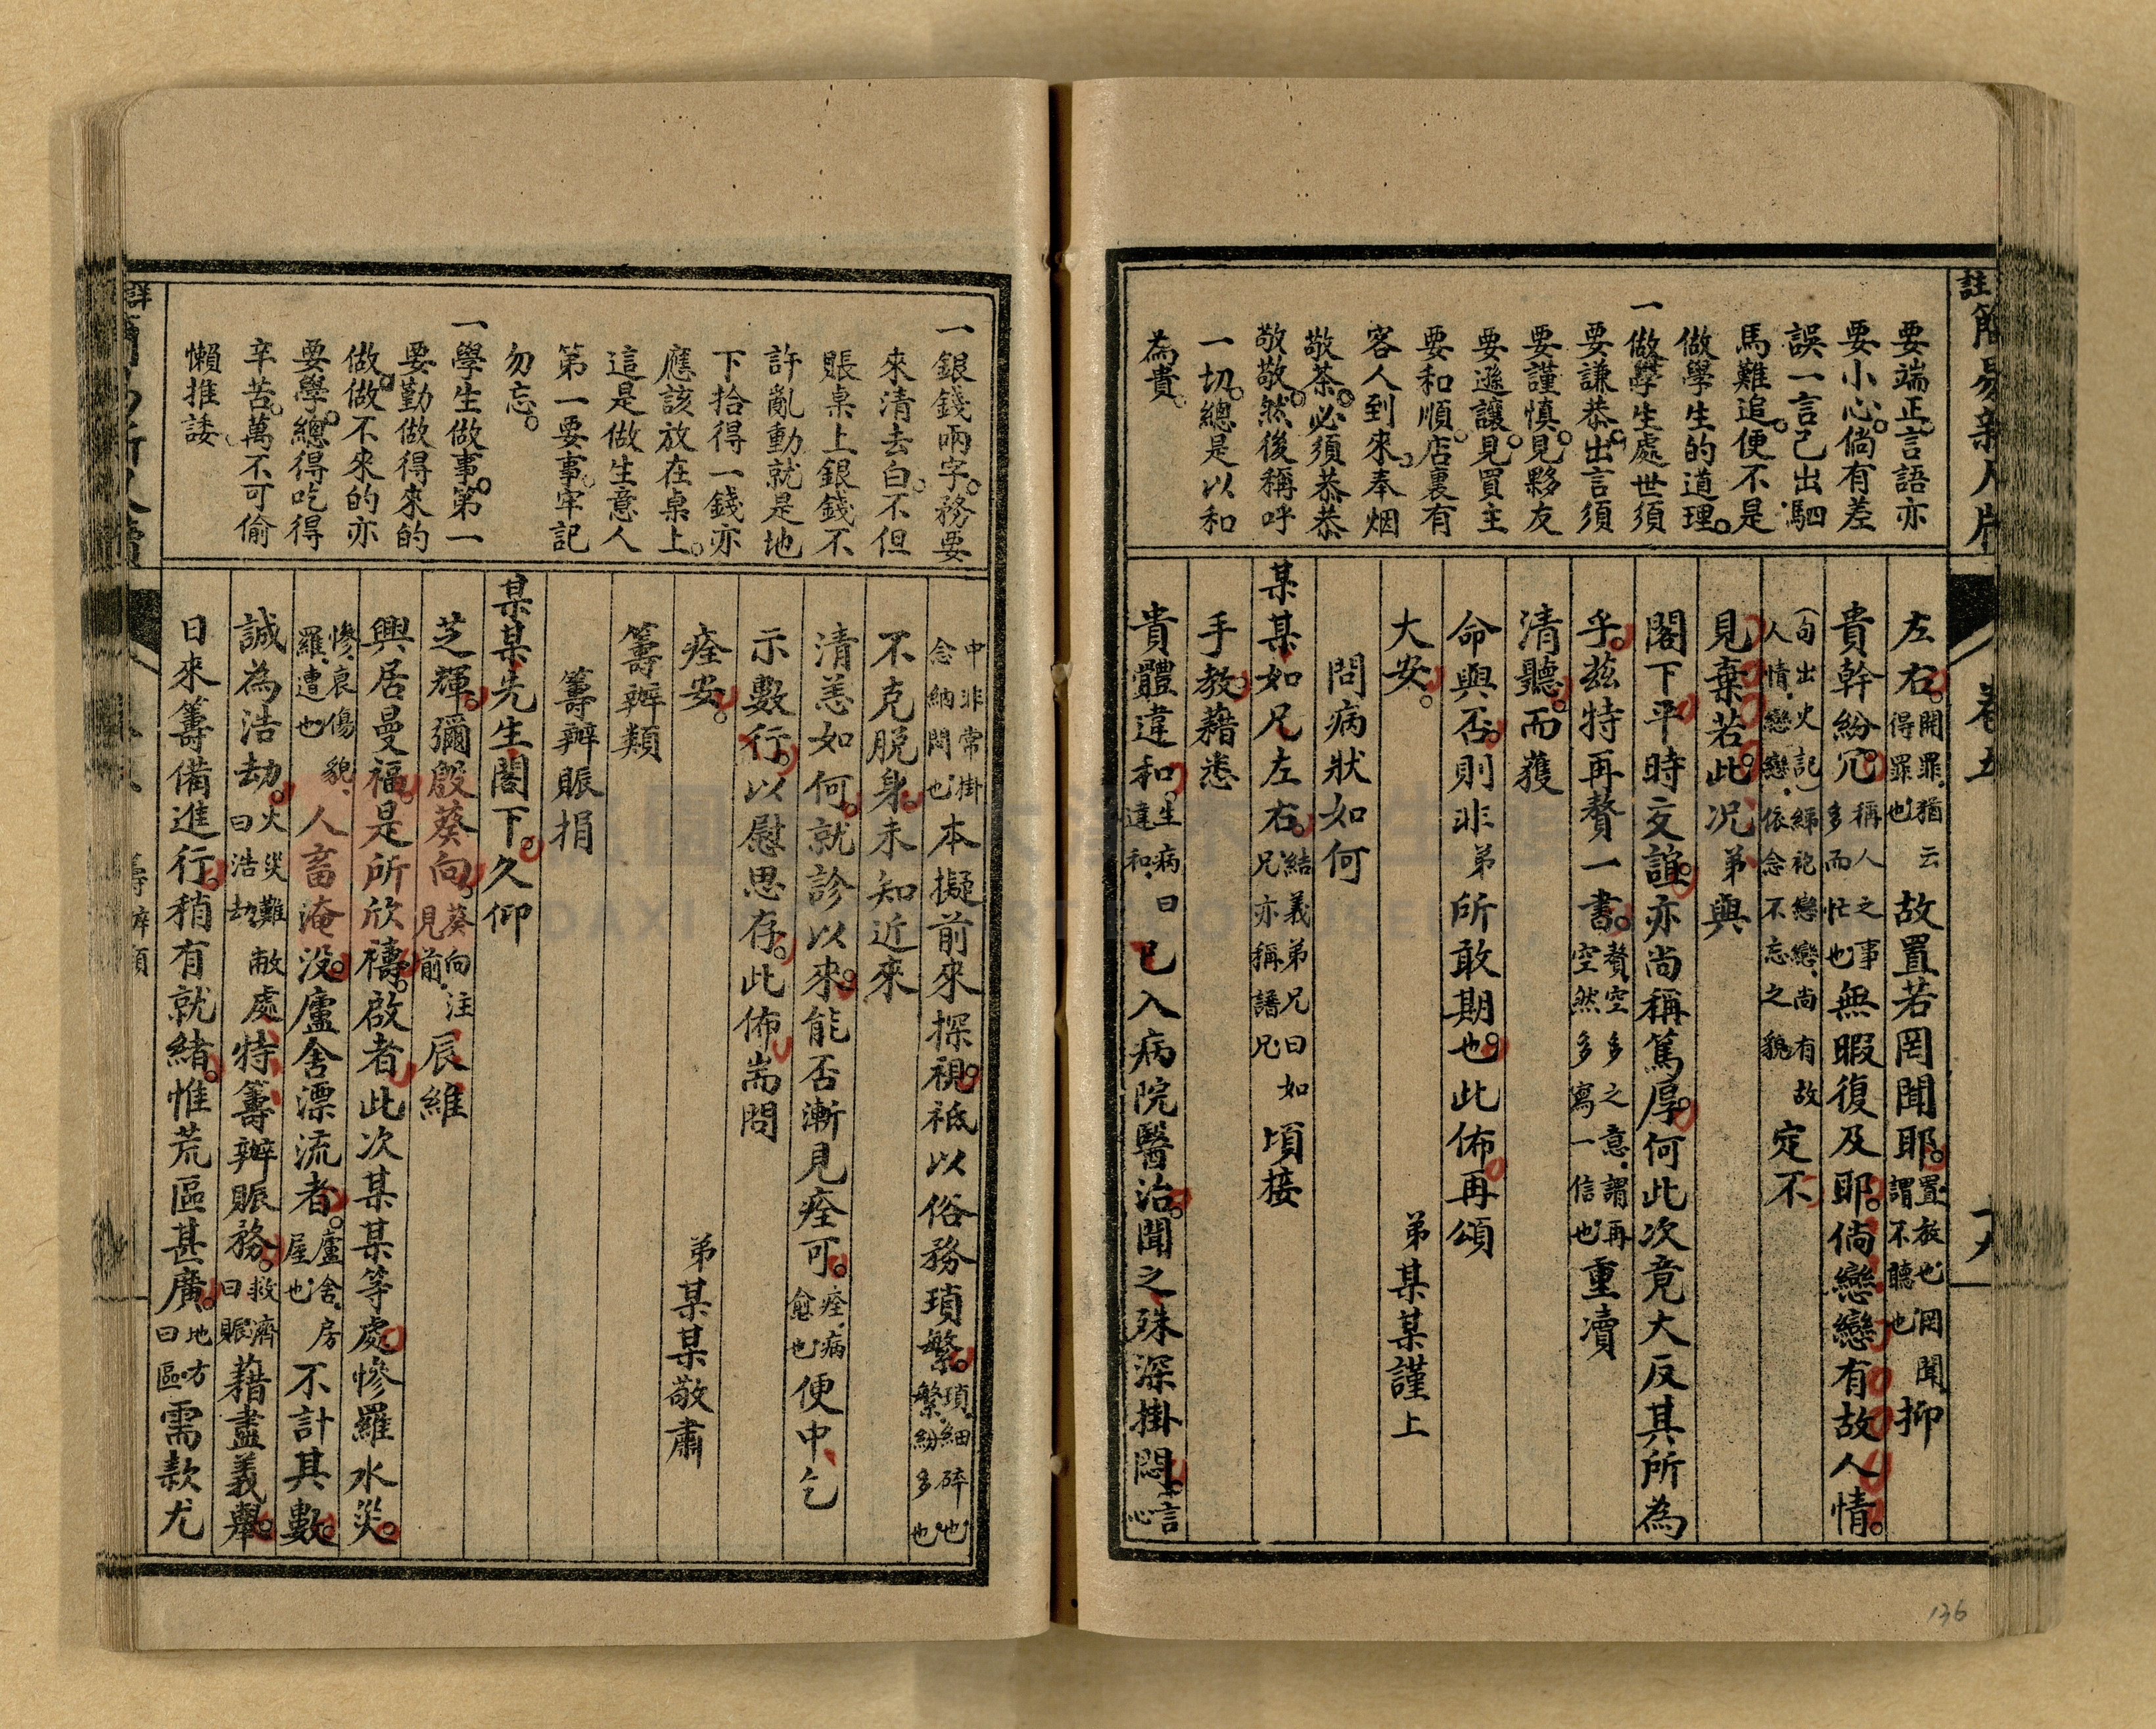 要端正。言語亦
要小心。倘有差
誤一言已出。駟
馬難追。便不是
做學生的道理。
一做學生處世須
要謙恭。出言須
要謹慎。見夥友
要遜讓。見買主
要和順。店裏有
客人到來。奉烟
敬茶。必須恭恭
敬敬。然後稱呼
一切。總是以和
為貴。
左右。開罪。猶云得罪也故置若罔聞耶。置放也罔聞謂不聽也抑
貴幹紛冗。稱人之事多而忙也無暇復及耶。倘戀戀有故人情。
(句出史記)綈袍戀戀。尚有故人情。戀戀。依念不忘之貌定不
見棄若此。况弟與
閣下平時交誼。亦尚稱篤厚。何此次竟大反其所為
乎。茲特再贅一書。贅空多之意。謂再空然多寫一信也重瀆
清聽。而獲
命與否。則非弟所敢期也。此佈再頌
大安。
弟某某謹上
問病狀如何
某某如兄左右。結義弟兄曰如兄亦稱譜兄頃接
手教。藉悉
貴體違和。生病曰違和.已入病院醫治。聞之殊深掛悶。言心
一銀錢兩字。務要
來清去白。不但
賬桌上銀錢不
許亂動就是地
下拾得一錢亦
應該放在桌上。
這是做生意人
第一要事。牢記
勿忘。
一學生做事。第一
要勤做得來的
做做。不來的亦
要學。總得吃得
辛苦。萬不可偷
懶推諉。
中非常掛念納悶也本擬前來探視。祗以俗務瑣繁。瑣.細碎也繁紛多也
不克脫身。未知近來
清恙如何。就診以來。能否漸見痊可。痊.病愈也便中乞
示數行。以慰思存。此佈耑問
痊安。
弟某某敬肅
籌辦類
籌辦賑捐
某某先生閣下。久仰
芝輝。彌殷葵向。葵向.注見前辰維
興居曼福。是所欣禱。啟者此次某某等處。慘羅水災。
慘.哀傷貌.羅.遭也人畜淹沒。廬舍漂流者。廬舍.房屋也不計其數。
誠為浩劫。火災難曰浩劫敝處特籌辦賑務。救濟曰賑藉盡義舉。
日來籌備進行。稍有就緒。惟荒區甚廣。地方曰區需款尤
卷五
136